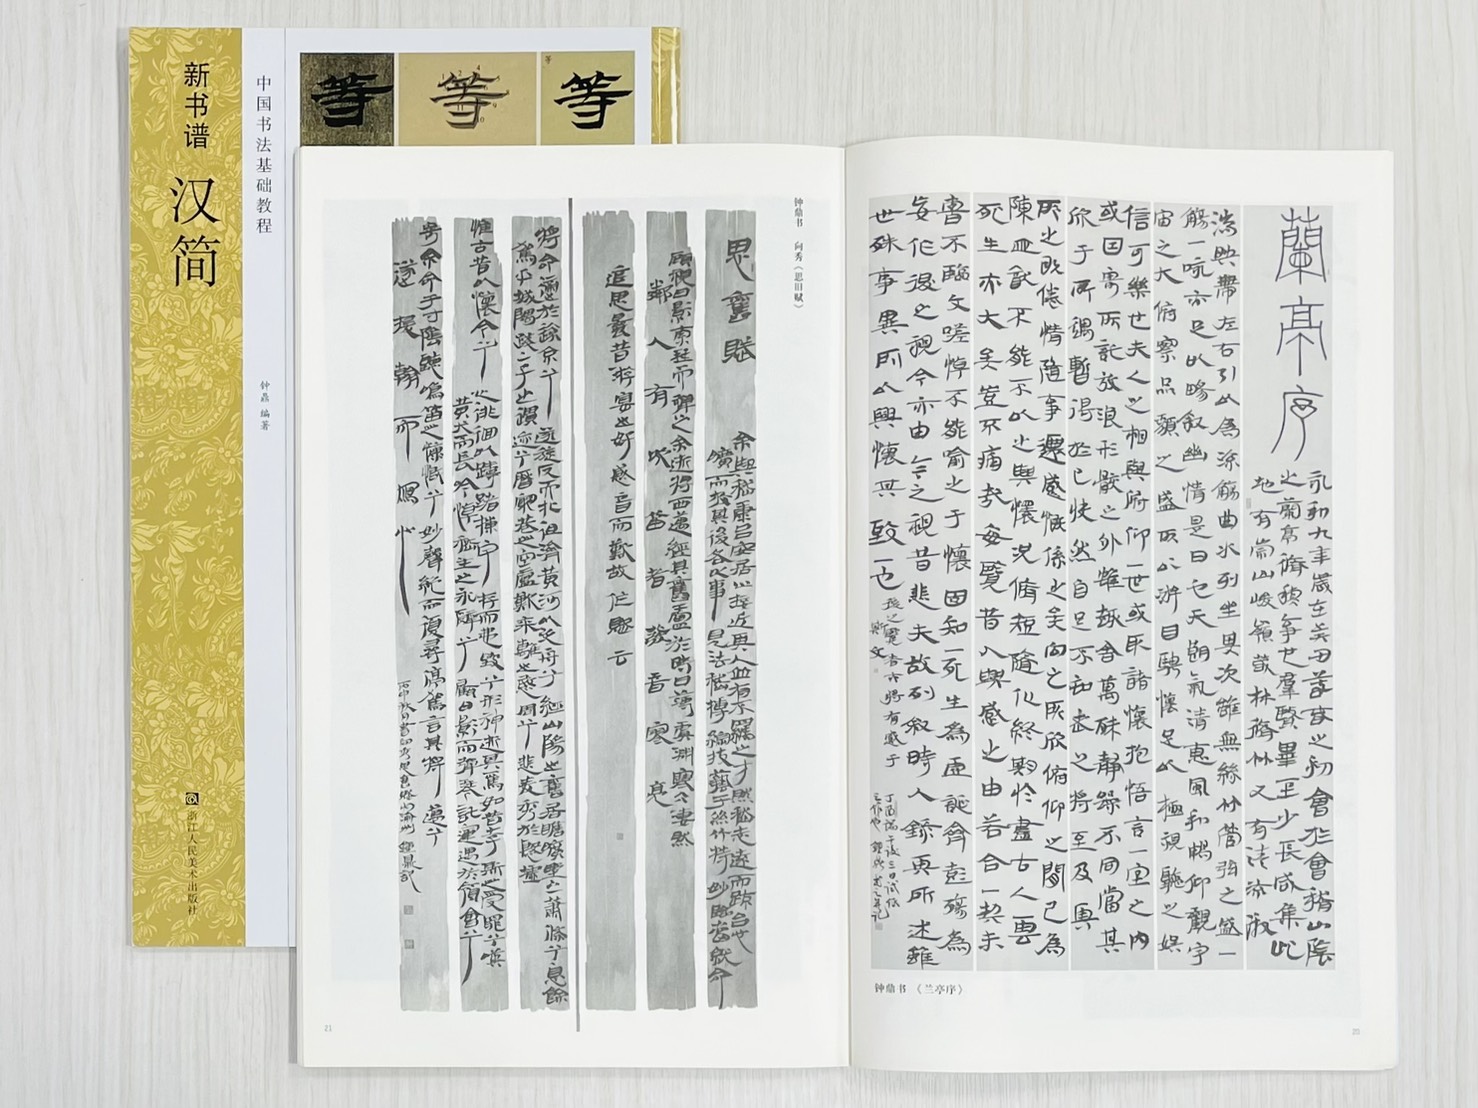 新书谱
汉简
中国书法基础教程
钟鼎 编著
浙江人民美术出版社
等
等
等
等
蘭亭序
永和九年歲在癸丑暮春之初會於會稽山陰
之蘭亭脩稧事也羣賢畢至少長咸集此
地有崇山峻嶺茂林脩竹又有清流激
湍映帶左右引以為流觴曲水列坐其次雖無絲竹管弦之盛一
觴一詠亦足以暢敘幽情是日也天朗氣清惠風和暢仰觀宇
宙之大俯察品類之盛所以遊目騁懷足以極視聽之娛
信可樂也夫人之相與俯仰一世或取諸懷抱悟言一室之內
或因寄所託放浪形骸之外雖趣舍萬殊靜躁不同當其
欣于所遇暫得於己快然自足不知老之將至及其
所之既倦情隨事遷感慨係之矣向之所欣俯仰之間已為
陳迹猶不能不以之興懷況脩短隨化終期於盡古人云
死生亦大矣豈不痛哉每覽昔人興感之由若合一契未
嘗不臨文嗟悼不能喻之于懷固知一死生為虛誕齊彭殤為
妄作後之視今亦由今之視昔悲夫故列敘時人錄其所述雖
世殊事異所以興懷其致一也後之覽者亦將有感于
斯文
钟鼎书 《兰亭序》
20
钟鼎书 向秀《思旧赋》
思舊賦
余與嵇康呂安居止接近其人並有不羈之才然嵇志遠而疎呂心
曠而放其後各以事見法嵇博綜技藝于絲竹特妙臨當就命
顧視日影索琴而彈之余逝將西邁經其舊廬於時日薄虞淵寒冰淒然
鄰人有吹笛者發音寥亮
追思曩昔遊宴之好感音而歎故作賦云
將命適於遠京兮遂旋反而北徂濟黃河以汎舟兮經山陽之舊居瞻曠野之蕭條兮息余
駕乎城隅踐二子之遺迹兮歷窮巷之空廬歎黍離之愍周兮悲麥秀於殷墟
惟古昔以懷今兮心徘徊以躊躇棟宇存而弗毀兮形神逝其焉如昔李斯之受罪兮嘆
黃犬而長吟悼嵇生之永辭兮顧日影而彈琴託運遇於領會兮
寄余命于寸陰聽鳴笛之慷慨兮妙聲絕而復尋停駕言其將邁兮
遂援翰而寫心
21